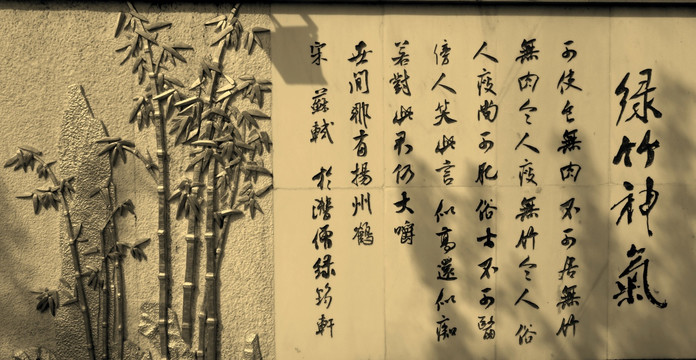 绿竹神氣
可使食無肉不可居無竹
無肉令人瘦無竹令人俗
人瘦尚可肥俗士不可醫
傍人笑此言似高還似痴
若對此君仍大嚼
世間那有揚州鶴
宋 蘇軾 於潛僧绿筠軒